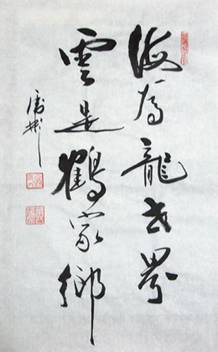 海为龙世界
雲是鶴家鄉